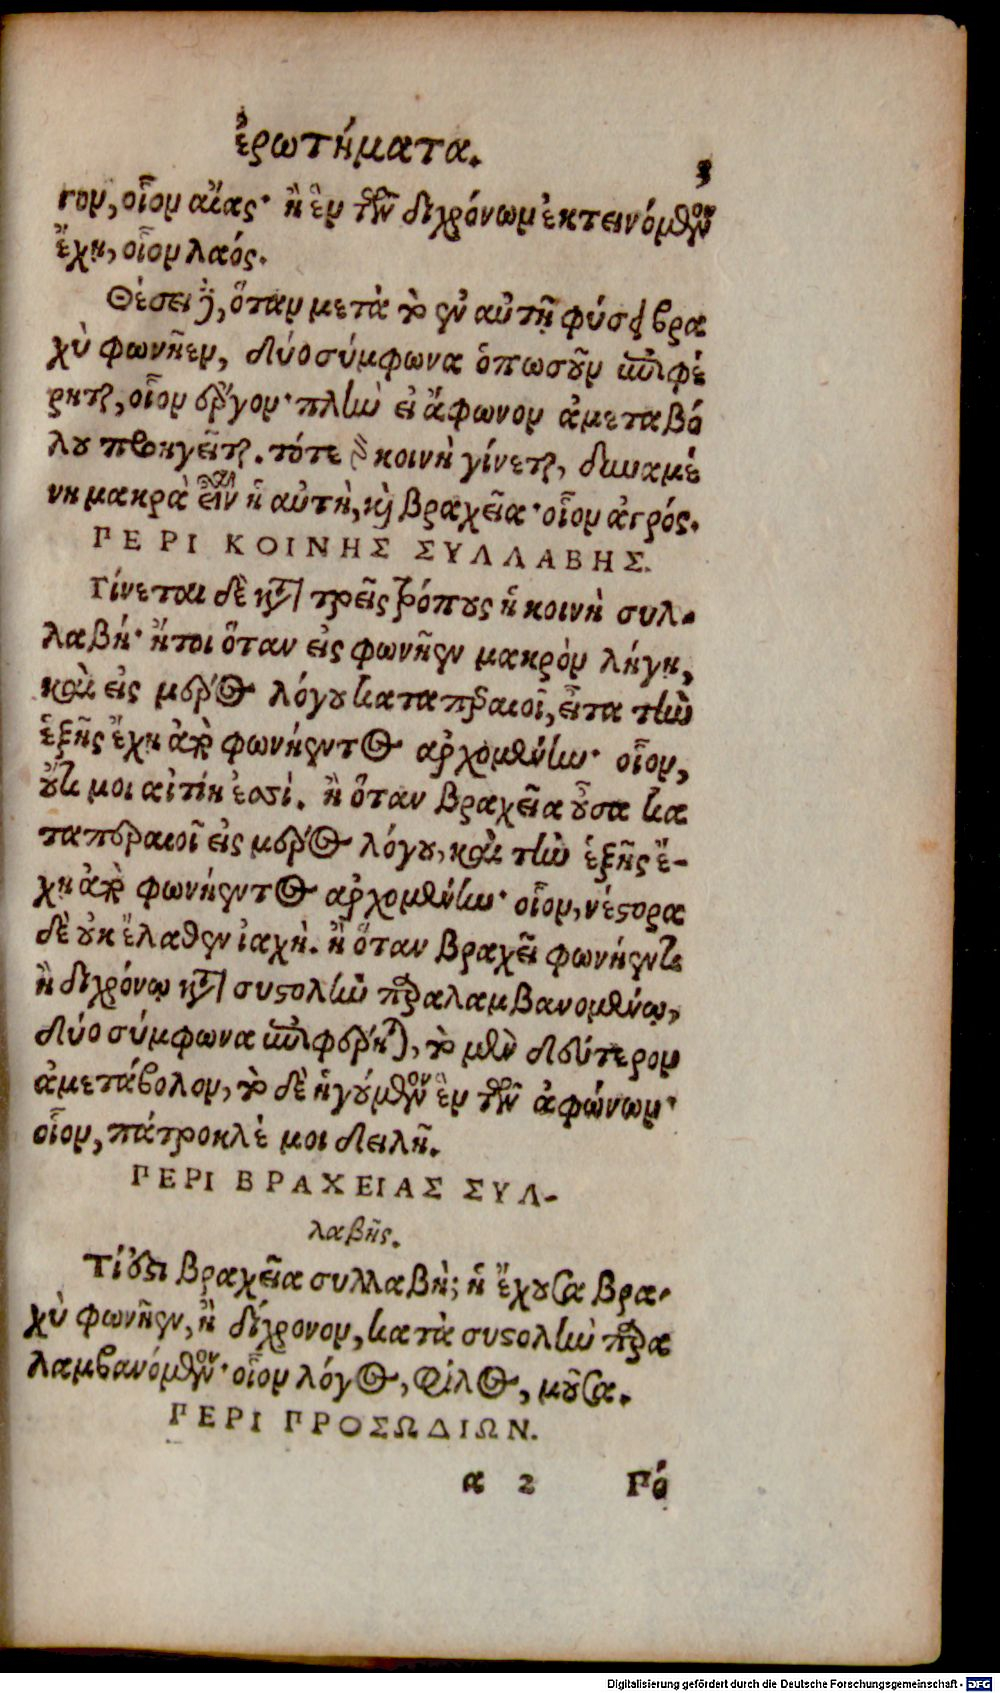 ἐρωτήματα.
3
γον, οἷον αἴας· ἢ ἓν τῶν διχρόνων ἐκτεινόμενον
ἔχῃ, οἷον λαός.
Θέσει δὲ, ὅταν μετὰ τὸ ἐν αὐτῇ φύσει βρα
χὺ φωνῆεν, δύο σύμφωνα ὁπωσοῦν ἐπιφέ
ρηται, οἷον ἔργον· πλὴν εἰ ἄφωνον ἀμεταβό
λου προηγεῖται. τότε γὰρ κοινὴ γίνεται, δυναμέ
νη μακρὰ εἶναι ἡ αὐτὴ, καὶ βραχεῖα· οἷον ἀγρός.
ΠΕΡΙ ΚΟΙΝΗΣ ΣΥΛΛΑΒΗΣ.
Γίνεται δὲ κατὰ τρεῖς τρόπους ἡ κοινὴ συλ-
λαβή· ἤτοι ὅταν εἰς φωνῆεν μακρὸν λήγῃ,
καὶ εἰς μέρος λόγου καταπεραιοῖ, εἶτα τὴν
ἑξῆς ἔχῃ ἀπὸ φωνήεντος ἀρχομένην· οἷον,
οὔτι μοι αἰτίη ἐσσί. ἢ ὅταν βραχεῖα οὖσα κα
ταπεραιοῖ εἰς μέρος λόγου, καὶ τὴν ἑξῆς ἔ-
χῃ ἀπὸ φωνήεντος ἀρχομένην· οἷον, νέστορα
δὲ οὐκ ἔλαθεν ἰαχὴ. ἢ ὅταν βραχεῖ φωνήεντι
ἢ διχρόνῳ κατὰ συστολὴν παραλαμβανομένῳ,
δύο σύμφωνα ἐπιφέρηται, τὸ μὲν δεύτερον
ἀμετάβολον, τὸ δὲ ἡγούμενον ἓν τῶν ἀφώνων·
οἷον, πάτροκλέ μοι δειλῆ.
ΠΕΡΙ ΒΡΑΧΕΙΑΣ ΣΥΛ-
λαβῆς.
Τί ἐστι βραχεῖα συλλαβὴ; ἡ ἔχουσα βρα-
χὺ φωνῆεν, ἢ δίχρονον, κατὰ συστολὴν παρα
λαμβανόμενον· οἷον λόγος, φίλος, μοῦσα.
ΠΕΡΙ ΠΡΟΣΩΔΙΩΝ.
α 2 Πό
Digitalisierung gefördert durch die Deutsche Forschungsgemeinschaft - DFG